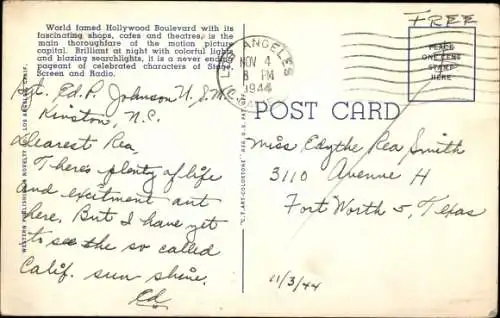 World famed Hollywood Boulevard with its
fascinating shops, cafes and theatres, is the
main thoroughfare of the motion picture
capital. Brilliant at night with colorful lights
and blazing searchlights, it is a never ending
pageant of celebrated characters of Stage,
Screen and Radio.
Sgt. Ed. P. Johnson U.S.M.C.
Kinston, N.C.
Dearest Rea
There's plenty of life
and excitment out
here. But I have yet
to see the so called
Calif. sun shine.
Ed
WESTERN PUBLISHING & NOVELTY CO., LOS ANGELES, CALIF.
"C.T. ART-COLORTONE" REG. U.S. PAT. OFF.
LOS ANGELES
NOV 4
8 PM
1944
FREE
PLACE
ONE CENT
STAMP
HERE
POST CARD
Miss Edythe Rea Smith
3110 Avenue H
Fort Worth 5, Texas
11/3/44